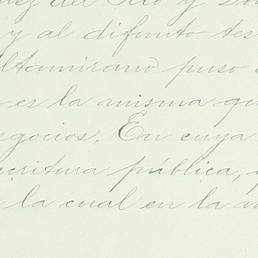 del Río y
y al difunto tes
ltamirano puso
es la misma qu
egocios. En cuya
critura pública,
la cual en la